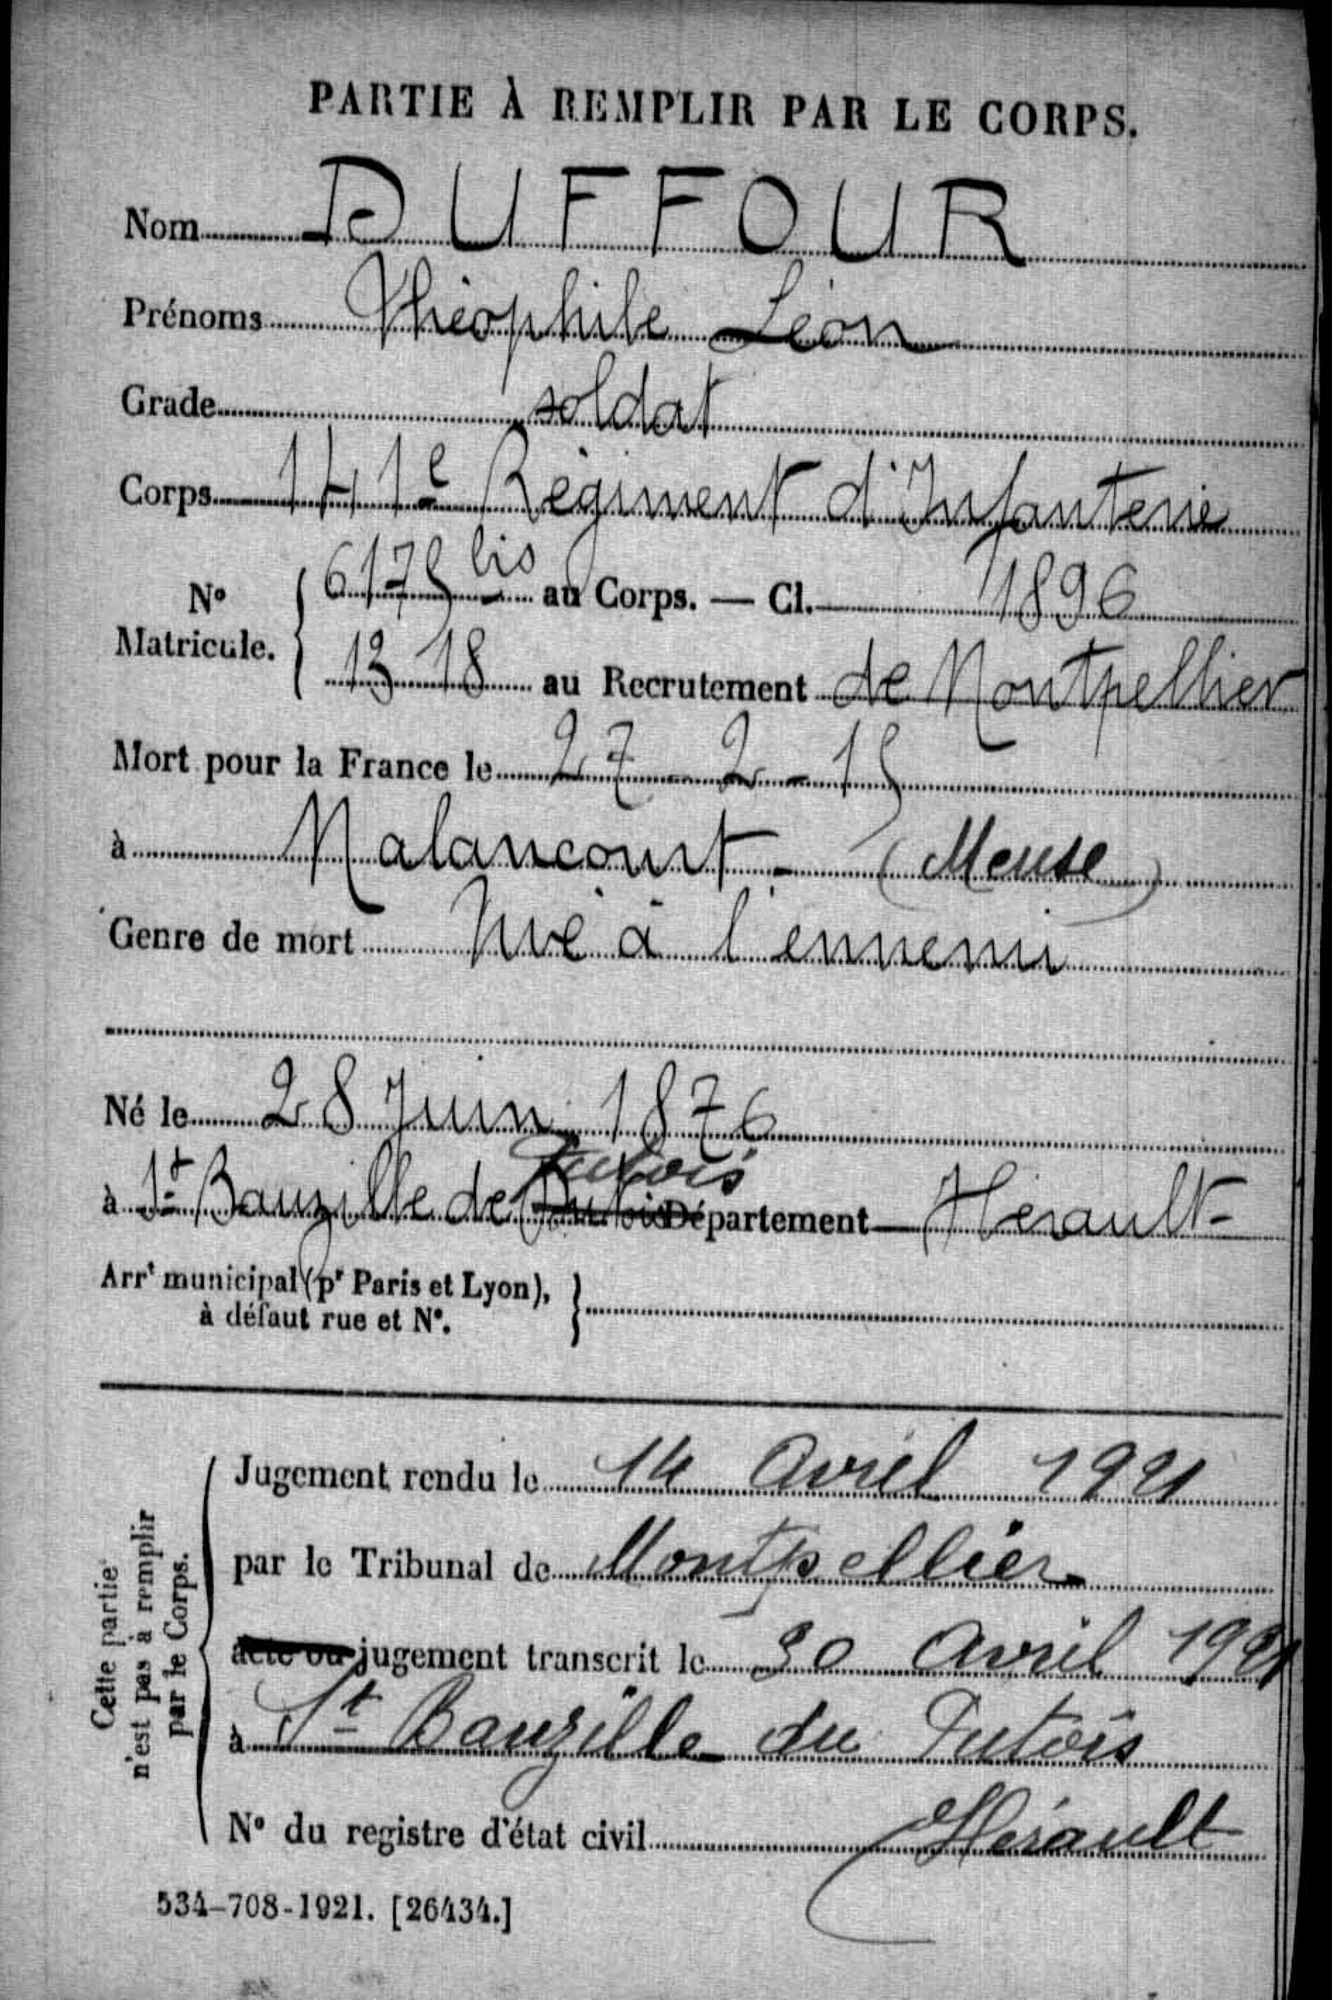 PARTIE À REMPLIR PAR LE CORPS.
Nom DUFFOUR
Prénoms Théophile Léon
Grade soldat
Corps 141e Régiment d'Infanterie
No Matricule. { 6175 bis au Corps. — Cl. 1896
1318 au Recrutement de Montpellier
Mort pour la France le 27 - 2 - 15
à Malancourt - (Meuse)
Genre de mort Tué à l'ennemi
Né le 28 Juin 1876
Putois
à St Bauzille de Putois Département Hérault
Arrt municipal (pr Paris et Lyon), à défaut rue et No. }
Cette partie n'est pas à remplir par le Corps.
Jugement rendu le 14 Avril 1921
par le Tribunal de Montpellier
acte ou jugement transcrit le 30 Avril 1921
à St Bauzille du Putois
No du registre d'état civil Hérault
534-708-1921. [26434.]